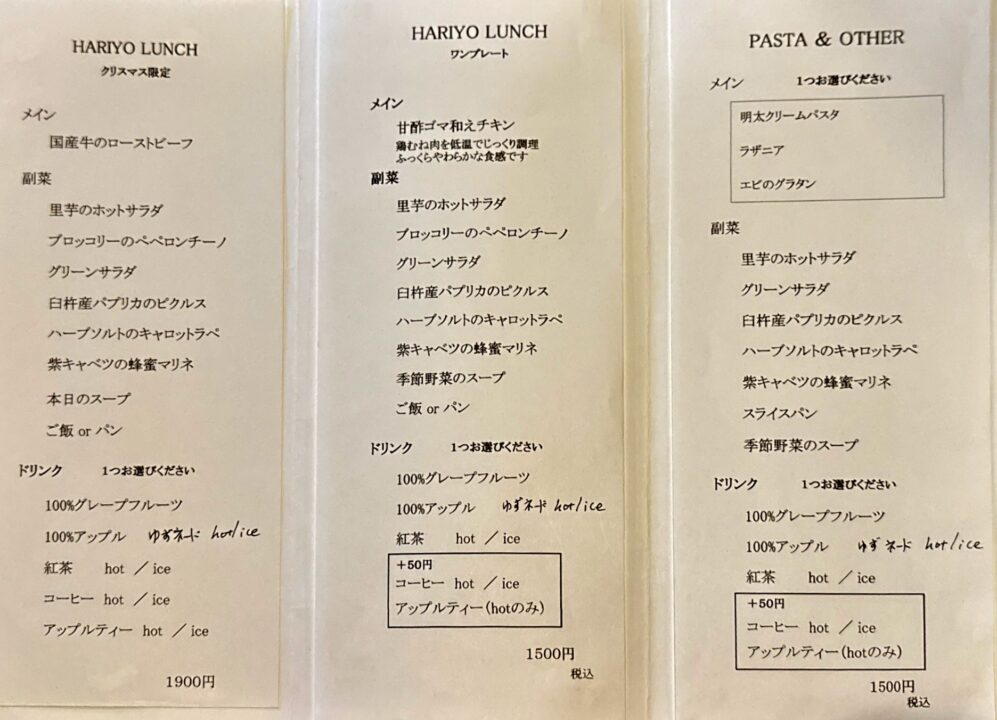 HARIYO LUNCH
クリスマス限定
メイン
国産牛のローストビーフ
副菜
里芋のホットサラダ
ブロッコリーのペペロンチーノ
グリーンサラダ
臼杵産パプリカのピクルス
ハーブソルトのキャロットラペ
紫キャベツの蜂蜜マリネ
本日のスープ
ご飯 or パン
ドリンク 1つお選びください
100%グレープフルーツ
100%アップル ゆずネード hot/ice
紅茶 hot ／ice
コーヒー hot ／ice
アップルティー hot ／ice
1900円
HARIYO LUNCH
ワンプレート
メイン
甘酢ゴマ和えチキン
鶏むね肉を低温でじっくり調理
ふっくらやわらかな食感です
副菜
里芋のホットサラダ
ブロッコリーのペペロンチーノ
グリーンサラダ
臼杵産パプリカのピクルス
ハーブソルトのキャロットラペ
紫キャベツの蜂蜜マリネ
季節野菜のスープ
ご飯 or パン
ドリンク 1つお選びください
100%グレープフルーツ
100%アップル ゆずネード hot/ice
紅茶 hot ／ice
＋50円
コーヒー hot ／ice
アップルティー(hotのみ)
1500円
税込
PASTA & OTHER
メイン 1つお選びください
明太クリームパスタ
ラザニア
エビのグラタン
副菜
里芋のホットサラダ
グリーンサラダ
臼杵産パプリカのピクルス
ハーブソルトのキャロットラペ
紫キャベツの蜂蜜マリネ
スライスパン
季節野菜のスープ
ドリンク 1つお選びください
100%グレープフルーツ
100%アップル ゆずネード hot/ice
紅茶 hot ／ice
＋50円
コーヒー hot ／ice
アップルティー(hotのみ)
1500円
税込